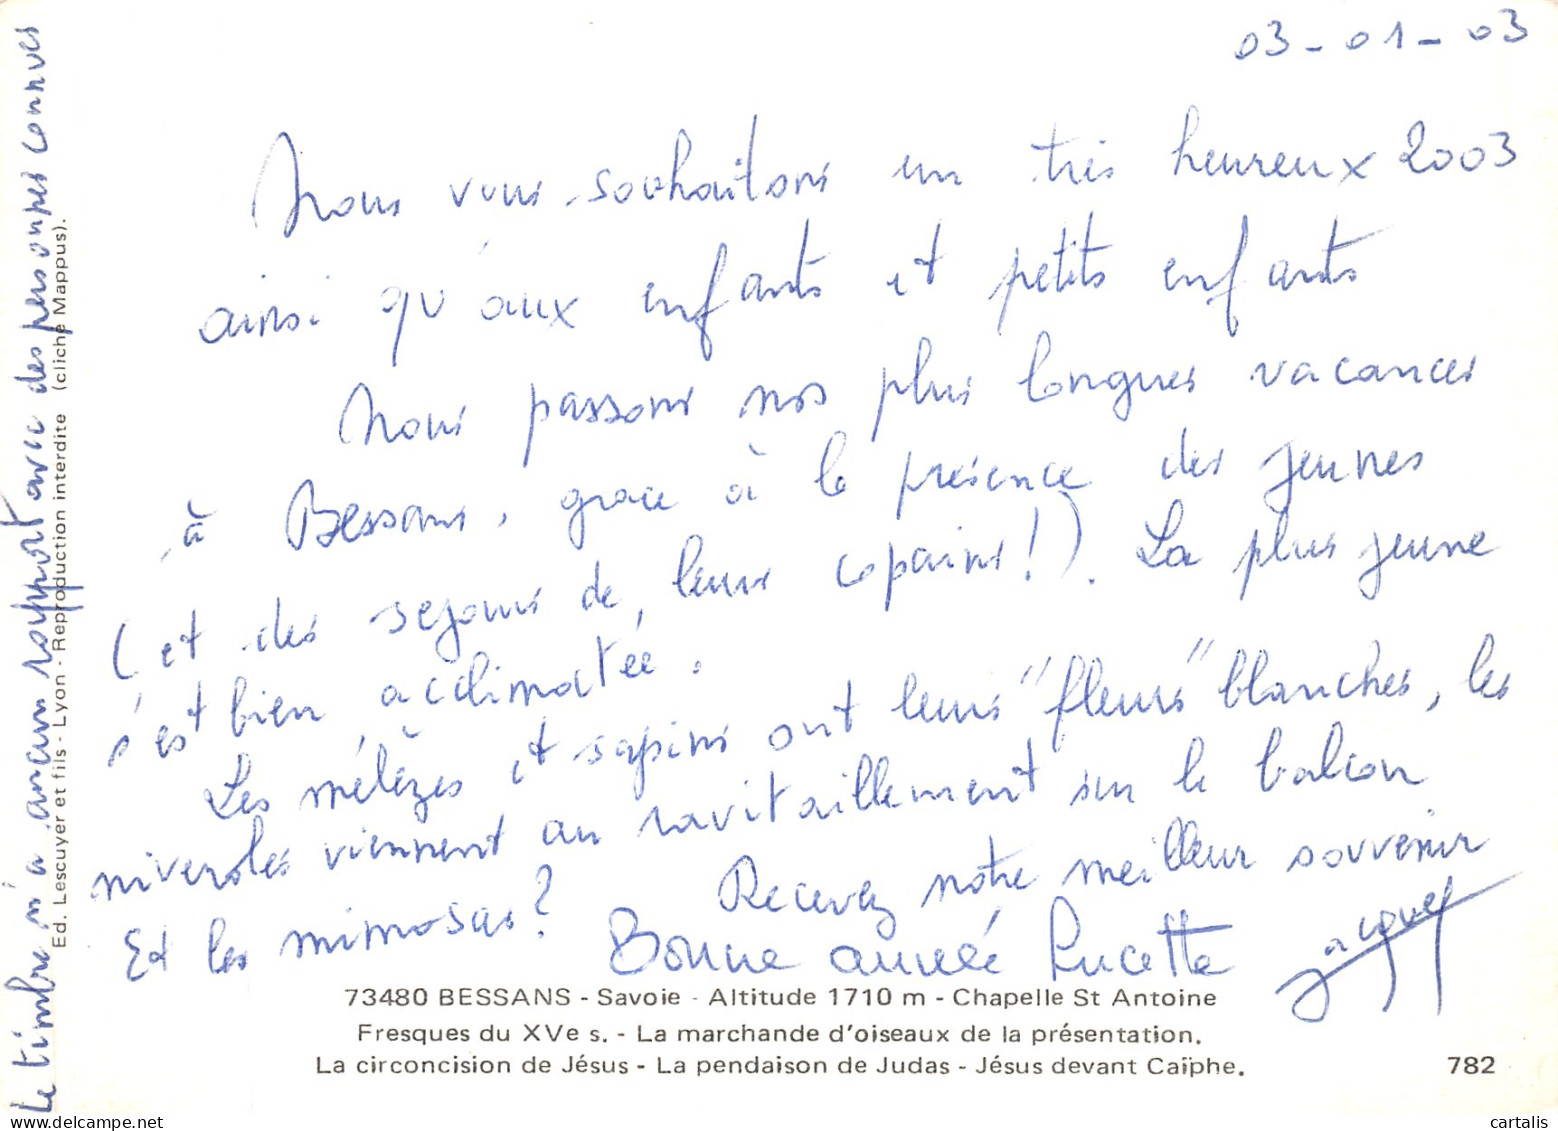 03-01-03
Nous vous souhaitons un très heureux 2003
ainsi qu'aux enfants et petits enfants
Nous passons nos plus longues vacances
à Bessans, grace à la présence des jeunes
(et des sejours de leurs copains!). La plus jeune
s'est bien acclimatée.
Les mélèzes et sapins ont leurs "fleurs" blanches, les
niveroles viennent au ravitaillement sur le balcon
Et les mimosas? Recevez notre meilleur souvenir
Bonne année Lucette Jacques
73480 BESSANS - Savoie - Altitude 1710 m - Chapelle St Antoine
Fresques du XVe s. - La marchande d'oiseaux de la présentation.
La circoncision de Jésus - La pendaison de Judas - Jésus devant Caïphe. 782
Le timbre n'a aucun rapport avec des personnes connues
Ed. Lescuyer et fils - Lyon - Reproduction interdite (cliché Mappus).
cartalis